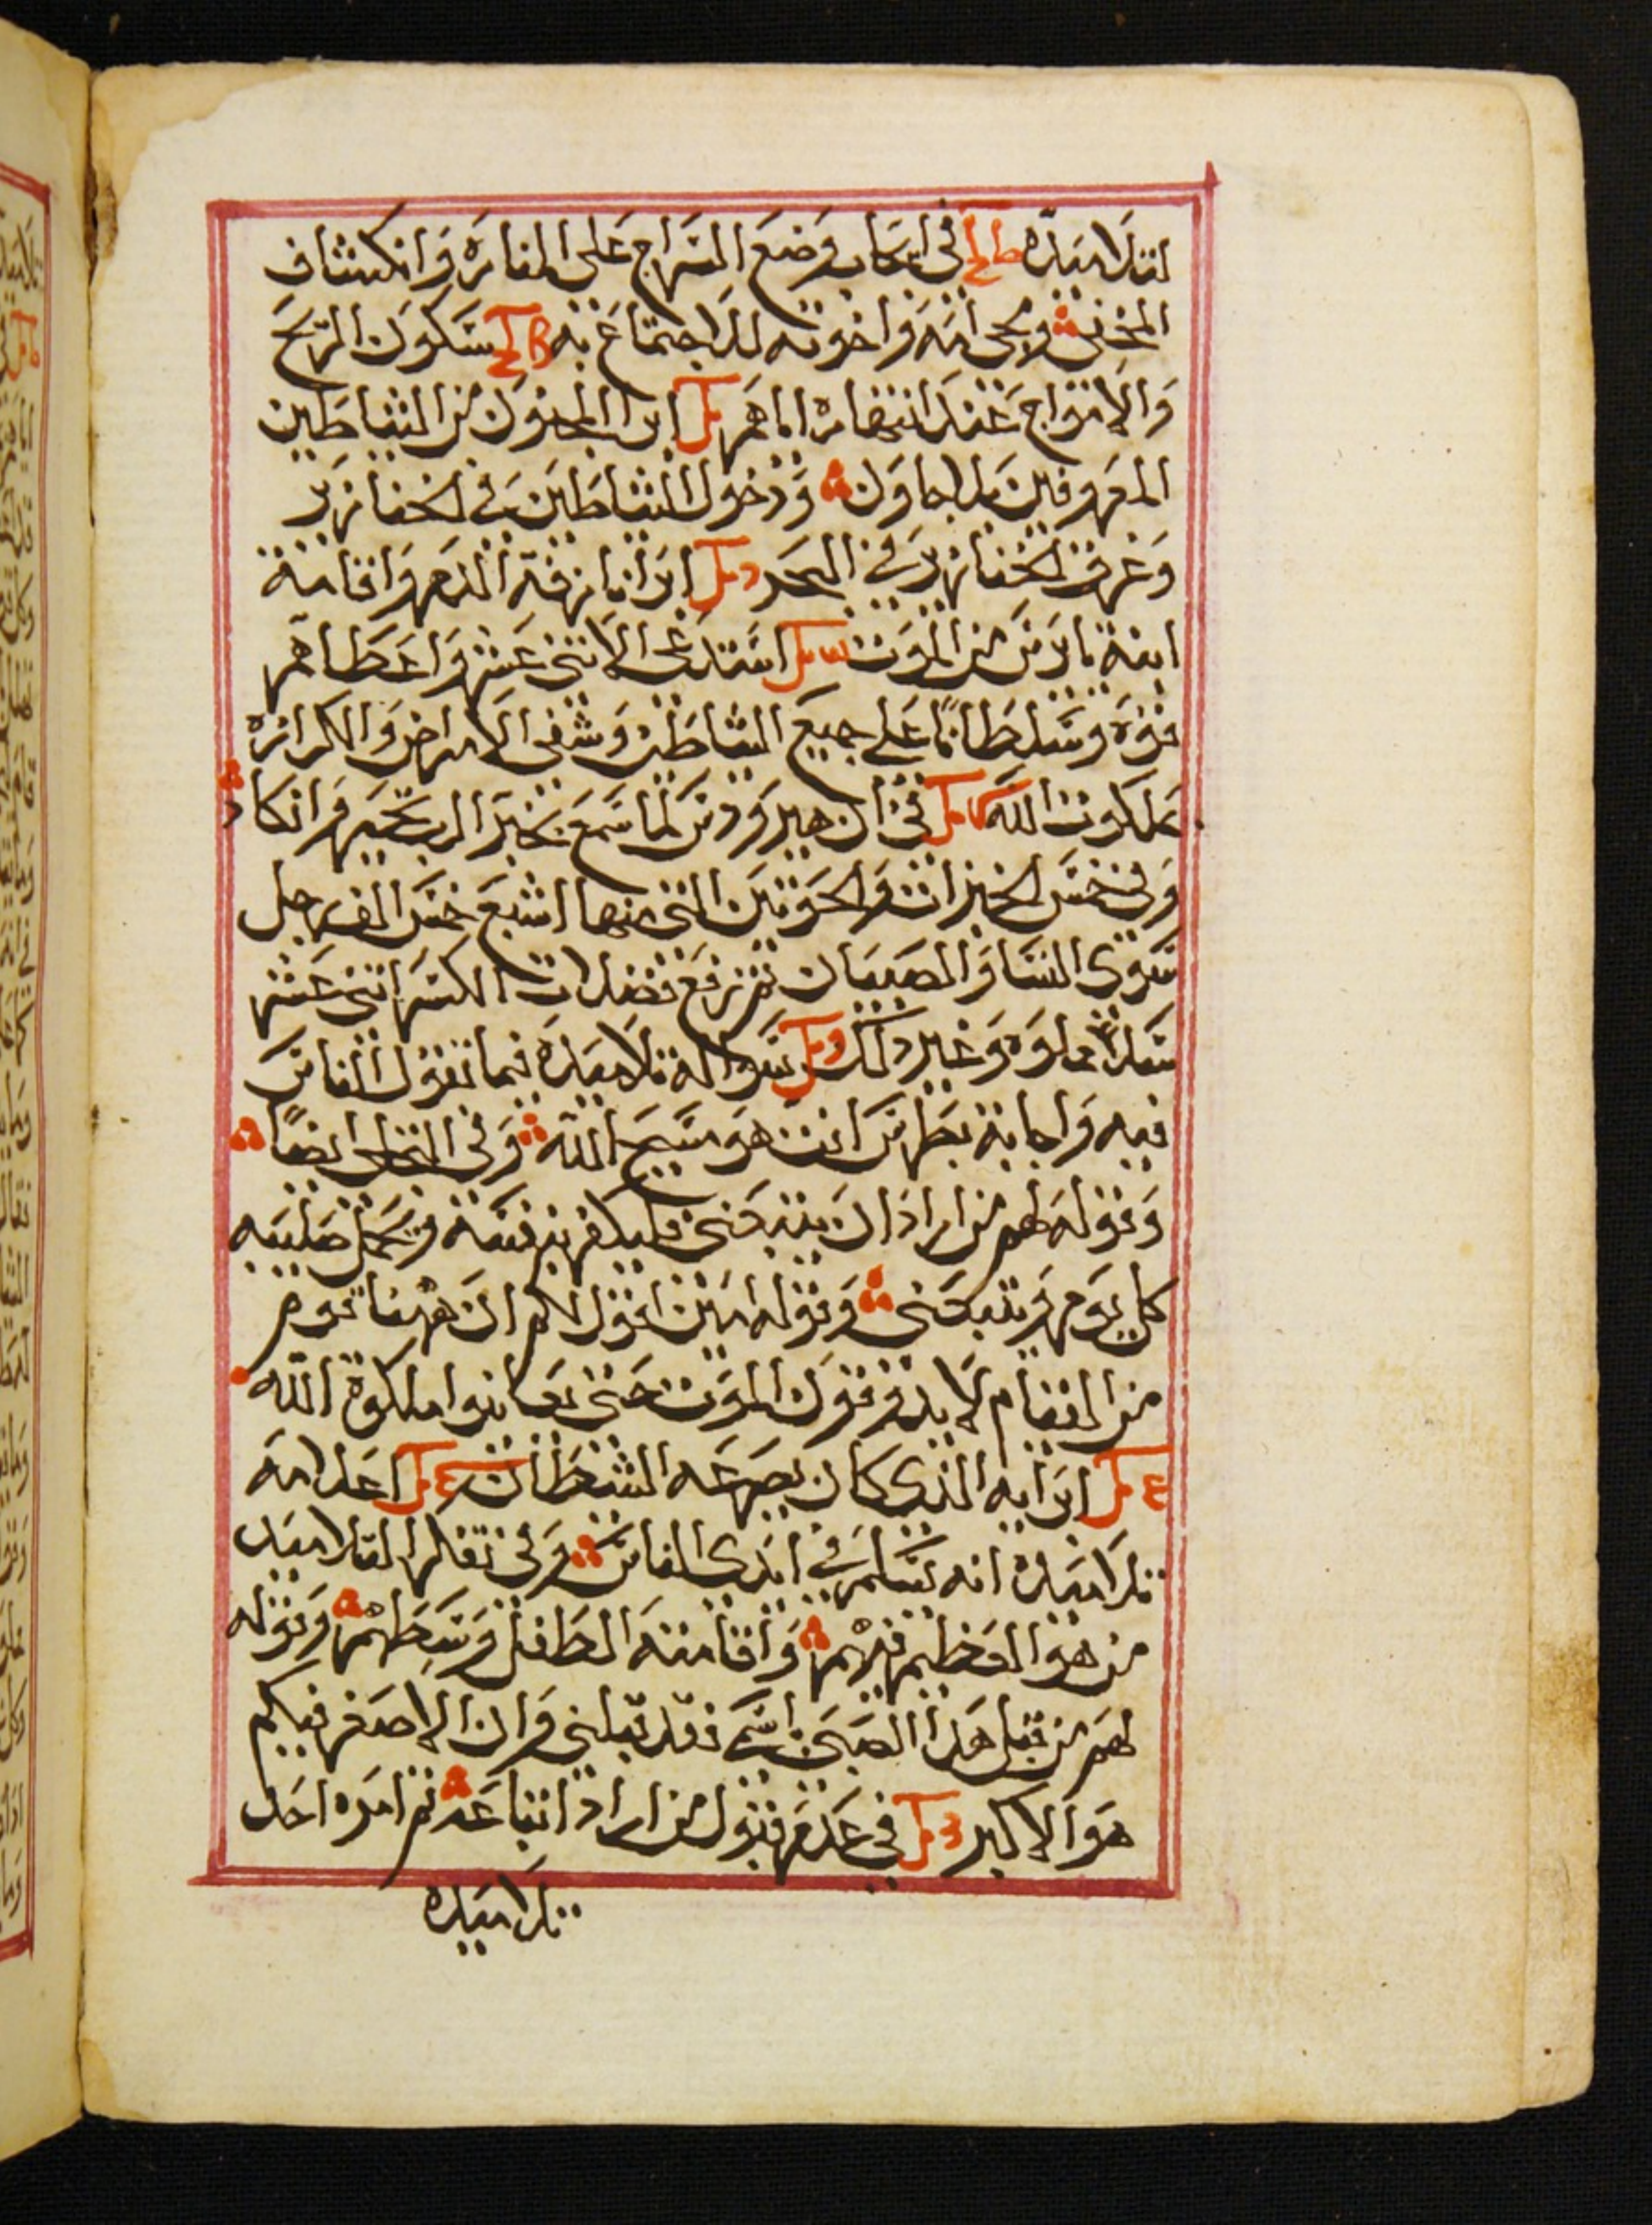 لتلاميده في ايجاب وضع السراج على المنارة وانكشاف
المخفي ومجي امه واخوته للاجتماع به سكون الريح
والامواج عند انتهاره اياهم ابرا المجنون من الشياطين
المعروفين بلاجاون ودخول الشياطين في الخنازير
وغرق الخنازير في البحر ابرا نازفة الدم واقامة
ابنة يايرس من الموت استدعى الاثنى عشر واعطاهم
قوة وسلطانًا على جميع الشياطين وشفى الامراض والكرازة
بملكوت الله في ان هيرودس لما سمع بخبر الرب تحير وانكاد
وفي خمس الخبزات والحوتين التي منها اشبع خمس الف رجل
سوى النسا والصبيان ثم رفع فضلات الكسر اثنى عشر
سلا مملوه وغير دلك سواله تلاميده فيما تقول الناس
فيه واجابة بطرس انت هو مسيح الله وفي التجلى ايضًا
وقوله لهم من اراد ان يتبعني فليكفر بنفسه ويحمل صليبه
كل يوم ويتبعني وقوله امين اقول لكم ان ههنا قوم
من القيام لا يدوقون الموت حتى يعاينوا ملكوة الله
ابرايه الذي كان يصرعه الشيطان اعلامه
تلاميده انه يسلم في ايدي الناس وفي تفكر التلاميد
من هو العظيم فيهم واقامته الطفل وسطهم وقوله
لهم من قبل هدا الصبي باسمي فقد قبلني وان الاصغر فيكم
هو الاكبر في عدم قبول من اراد اتباعه ثم امره احد
تلاميده